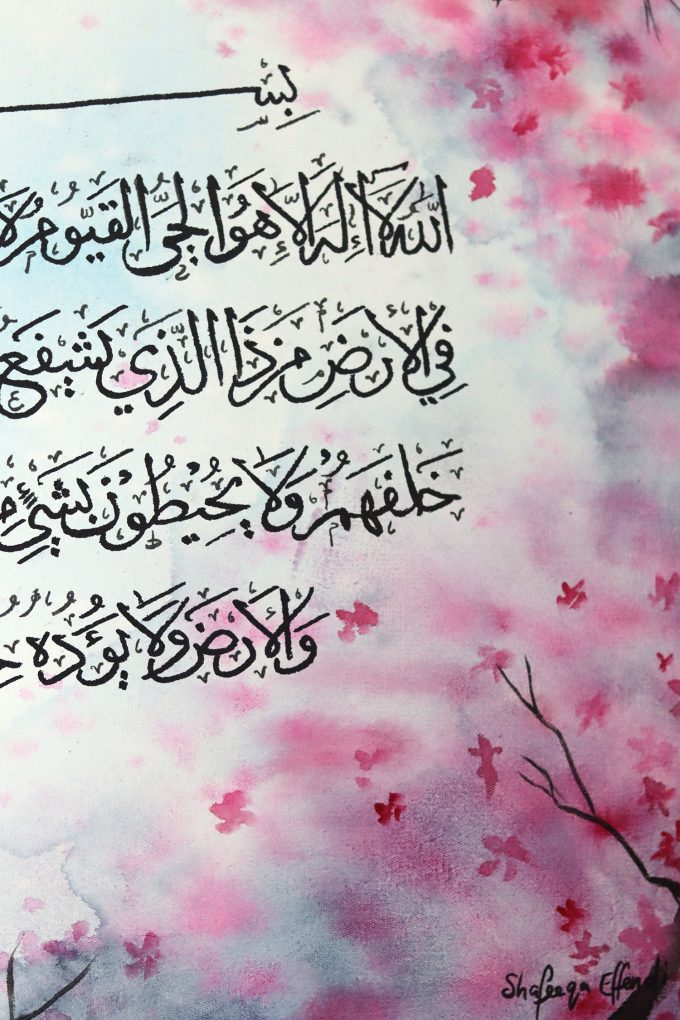 بِسْـ
اللَّهُ لَا إِلَٰهَ إِلَّا هُوَ الْحَيُّ الْقَيُّومُ لَا
فِي الْأَرْضِ مَنْ ذَا الَّذِي يَشْفَعُ
خَلْفَهُمْ وَلَا يُحِيطُونَ بِشَيْءٍ
وَالْأَرْضَ وَلَا يَؤُدُهُ
Shafeeqa Effendi